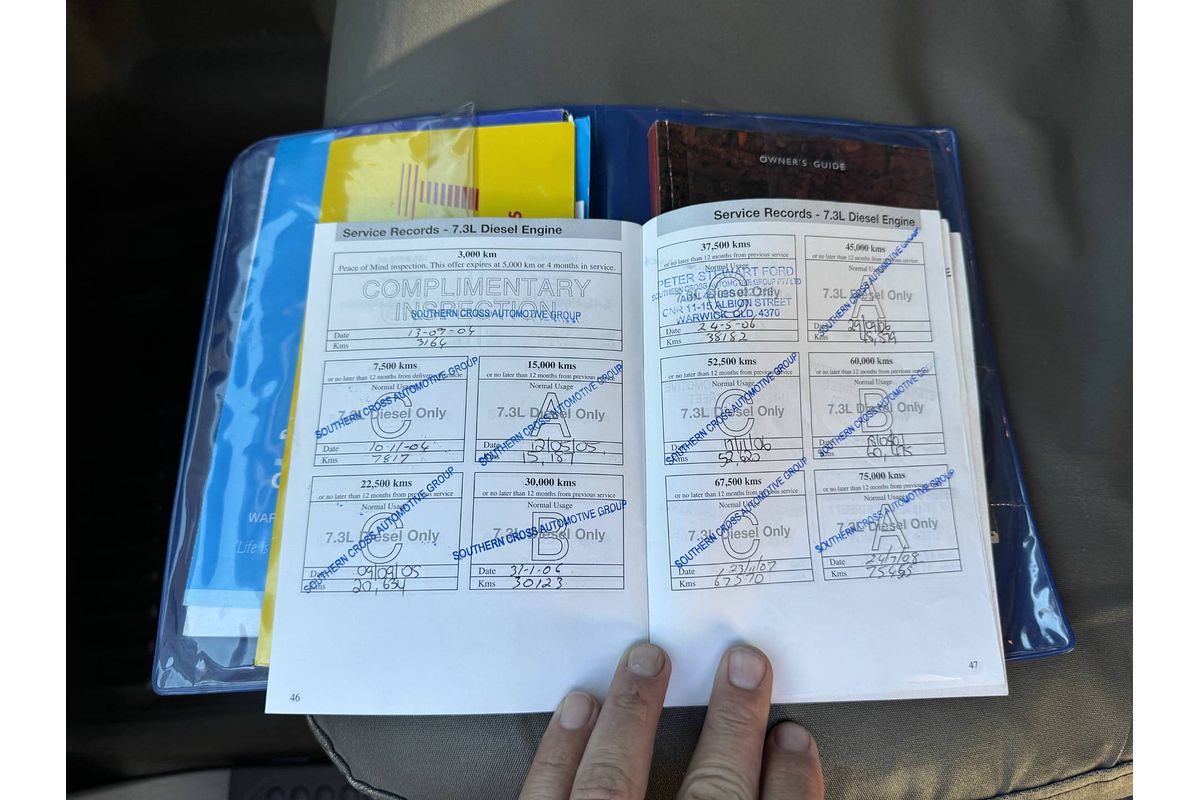 OWNER'S GUIDE
Service Records - 7.3L Diesel Engine
3,000 km
Peace of Mind inspection. This offer expires at 5,000 km or 4 months in service.
COMPLIMENTARY
INSPECTION
SOUTHERN CROSS AUTOMOTIVE GROUP
Date 13-09-04
Kms 3164
7,500 kms
or no later than 12 months from delivery vehicle
Normal Usage
C
7.3L Diesel Only
SOUTHERN CROSS AUTOMOTIVE GROUP
Date 10-11-04
Kms 7817
15,000 kms
or no later than 12 months from previous service
Normal Usage
A
7.3L Diesel Only
SOUTHERN CROSS AUTOMOTIVE GROUP
Date 12/05/05
15,187
22,500 kms
or no later than 12 months from previous service
Normal Usage
C
7.3L Diesel Only
SOUTHERN CROSS AUTOMOTIVE GROUP
Date 09/09/05
Kms 20,654
30,000 kms
or no later than 12 months from previous service
Normal Usage
B
7.3L Diesel Only
SOUTHERN CROSS AUTOMOTIVE GROUP
Date 31-1-06
Kms 30123
46
Service Records - 7.3L Diesel Engine
37,500 kms
or no later than 12 months from previous service
Normal Usage
C
7.3L Diesel Only
PETER STEWART FORD
SOUTHERN CROSS AUTOMOTIVE GROUP PTY LTD
CNR 11-15 ALBION STREET
WARWICK QLD. 4370
Date 24-5-06
Kms 38182
45,000 kms
or no later than 12 months from previous service
Normal Usage
A
7.3L Diesel Only
SOUTHERN CROSS AUTOMOTIVE GROUP
Date 29/9/06
Kms
52,500 kms
or no later than 12 months from previous service
Normal Usage
C
7.3L Diesel Only
SOUTHERN CROSS AUTOMOTIVE GROUP
Date 17/11/06
Kms 52,625
60,000 kms
or no later than 12 months from previous service
Normal Usage
B
7.3L Diesel Only
SOUTHERN CROSS AUTOMOTIVE GROUP
Date
Kms
67,500 kms
or no later than 12 months from previous service
Normal Usage
C
7.3L Diesel Only
SOUTHERN CROSS AUTOMOTIVE GROUP
Date 23/11/07
Kms 67570
75,000 kms
or no later than 12 months from previous service
Normal Usage
A
7.3L Diesel Only
SOUTHERN CROSS AUTOMOTIVE GROUP
Date 24/7/08
Kms 75455
47